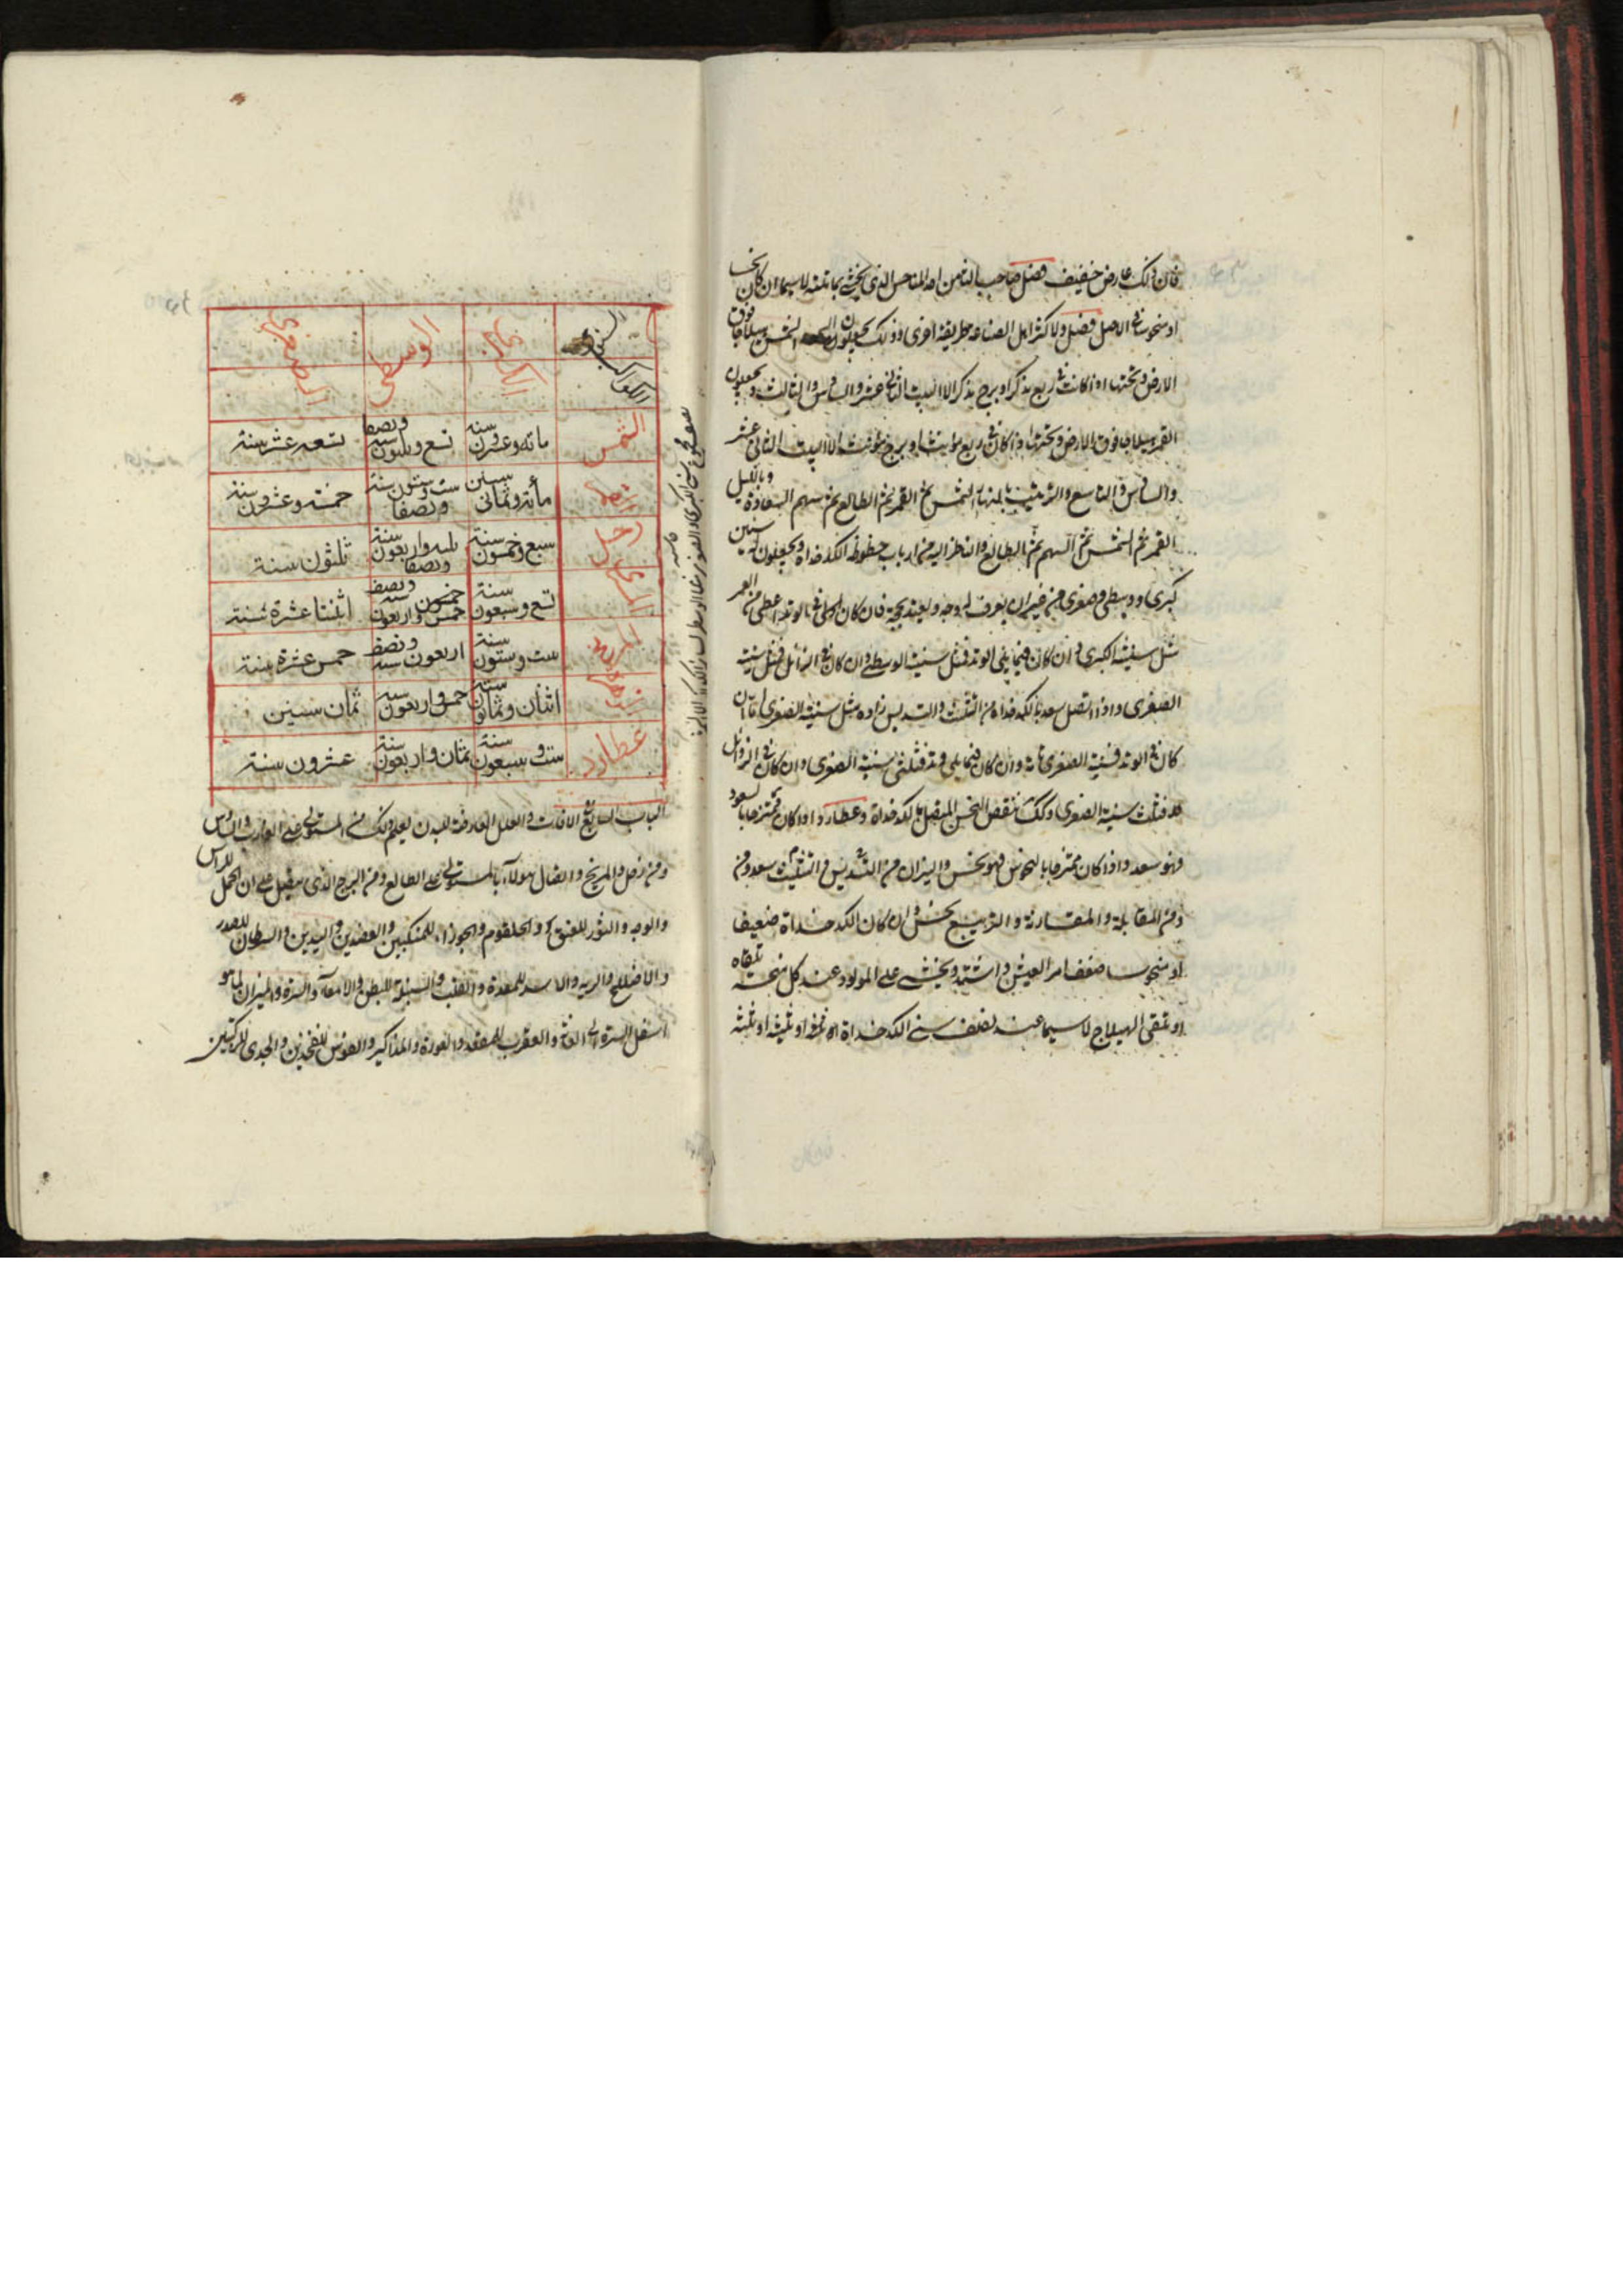 فان ذلك عارض خفيف فصل صاحب الثامن احد المناحس الذي يخشى بما ثلثه لاسيما ان كان نحسا
او منحوسا في الاصل فصل ولاكثر اهل الصناعة طريقة اخرى وذلك يجعلون الشمس هيلاجا فوق
الارض وتحتها اذا كانت في ربع مذكر او برج مذكر الا البيت الثاني عشر والسادس والثالث ويجعلون
القمر هيلاجا فوق الارض وتحتها اذا كان في ربع مؤنث او برج مؤنث الا البيت الثاني عشر
والسادس والتاسع والترتيب بالنهار الشمس ثم القمر ثم الطالع ثم سهم السعادة وبالليل
القمر ثم الشمس ثم السهم ثم الطالع والناظر اليه من ارباب حظوظه الكدخداة ويجعلون له سنين
كبرى ووسطى وصغرى من غير ان يعرف له وجه ويعتد بحجة فان كان في الوتد اعطى من العمر
مثل سنيه الكبرى وان كان فيما يلي الوتد فمثل سنيه الوسطى وان كان في الزائل فمثل سنيه
الصغرى واذا اتصل سعد بالكدخداة من التثليث والتسديس زاده مثل سنيه الصغرى اما ان
كان في الوتد فسنيه الصغرى تامة وان كان فيما يلي وتد فثلثي سنيه الصغرى وان كان في الزوائل
فثلث سنيه الصغرى وكذلك ينقص النحس المتصل بالكدخداة وعطارد اذا كان ممتزجا بالسعود
فهو سعد واذا كان ممتزجا بالنحوس فهو نحس والنيران من التسديس والتثليث سعد ومن
ومن المقابلة والمقارنة والتربيع نحس وان كان الكدخداة ضعيفا
او منحوسا ضعف امر العيش واشتد ويخشى على المولود عند كل نحسة تلقاه
او تلقى الهيلاج لاسيما عند نصف سني الكدخداة او ثلثه
السنين
الكواكب
الكبرى
الوسطى
الصغرى
الشمس
مائة وعشرون سنة
تسع وثلثون سنة ونصف
تسعة عشر سنة
القمر
مائة وثماني سنين
ست وستون سنة ونصفا
خمسة وعشرون سنة
زحل
سبع وخمسون سنة
ثلثه واربعون سنة ونصفا
ثلثون سنة
المشتري
تسع وسبعون سنة
خمس واربعون سنة ونصف
اثنتا عشرة سنة
المريخ
ست وستون سنة
اربعون سنة ونصف
خمس عشرة سنة
الزهرة
اثنان وثمانون سنة
خمس واربعون سنة
ثمان سنين
عطارد
ست وسبعون سنة
ثمان واربعون سنة
عشرون سنة
الباب السابع في الافات والعلل العارضة للبدن يعلم ذلك من المستولي على الطالع والسادس
ومن زحل والمريخ واتصال هولاء بالمستولي على الطالع ومن البرج الذي على ان الحمل للراس
والوجه والثور للعنق والحلقوم والجوزاء للمنكبين والعضدين واليدين والسرطان للصدر
والاضلاع والرية والاسد للمعدة والقلب والسنبلة للبطن والامعاء والسرة والميزان لما هو
اسفل السرة الى العانة والعقرب للمقعد والعورة والمذاكير والقوس للفخذين والجدي للركبتين